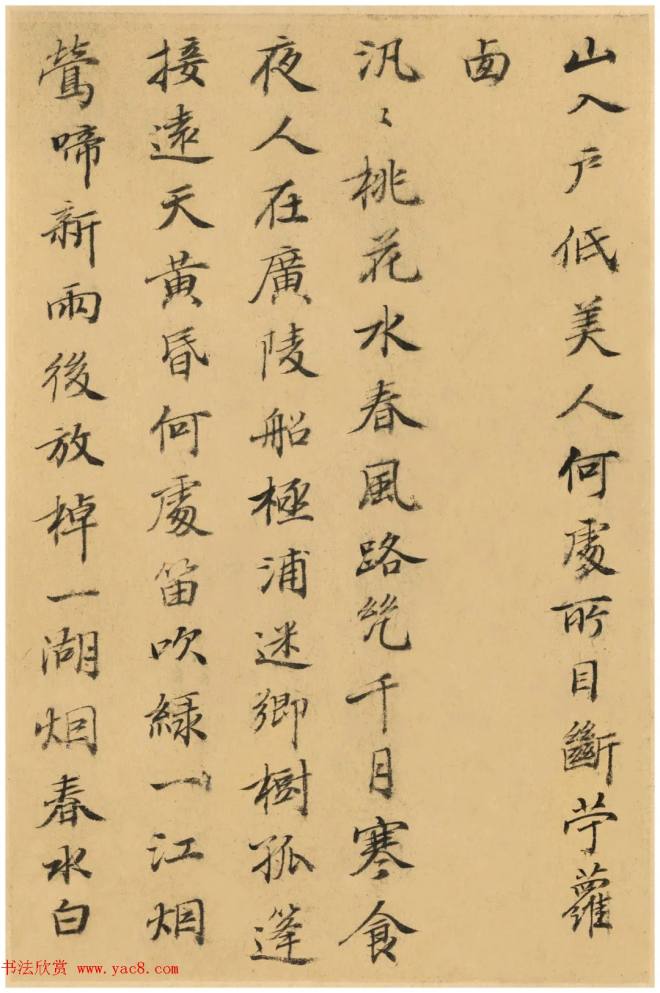 山入户低美人何處所目斷苧蘿
西
汎汎桃花水春風路幾千月寒食
夜人在廣陵船極浦迷鄉樹孤蓬
接遠天黃昏何處笛吹綠一江烟
鶯啼新雨後放棹一湖烟春水白
书法欣赏 www.yac8.com